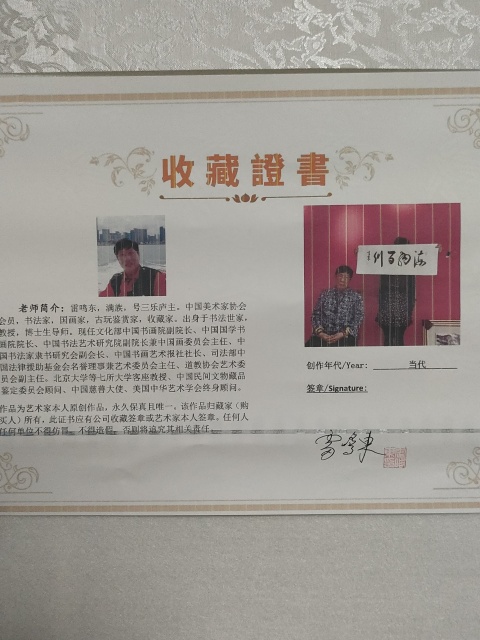 收藏證書
老师简介：雷鸣东，满族，号三乐庐主，中国美术家协会
会员，书法家，国画家，古玩鉴赏家，收藏家，出身于书法世家，
教授，博士生导师，现任文化部中国书画院副院长、中国国学书
画院院长、中国书法艺术研究院副院长兼中国画委员会主任、中
国书法家隶书研究会副会长、中国书画艺术报社社长，司法部中
国法律援助基金会名誉理事兼艺术委员会主任、道教协会艺术委
员会副主任。北京大学等七所大学客座教授、中国民间文物藏品
鉴定委员会顾问、中国慈善大使、美国中华艺术学会终身顾问。
作品为艺术家本人原创作品，永久保真且唯一。该作品归藏家（购
买人）所有，此证书应有公司收藏签章或艺术家本人签章。任何人
任何单位不得仿冒、不得造假，否则将追究其相关责任。
海纳百川
创作年代/Year: 当代
签章/Signature:
雷鸣東